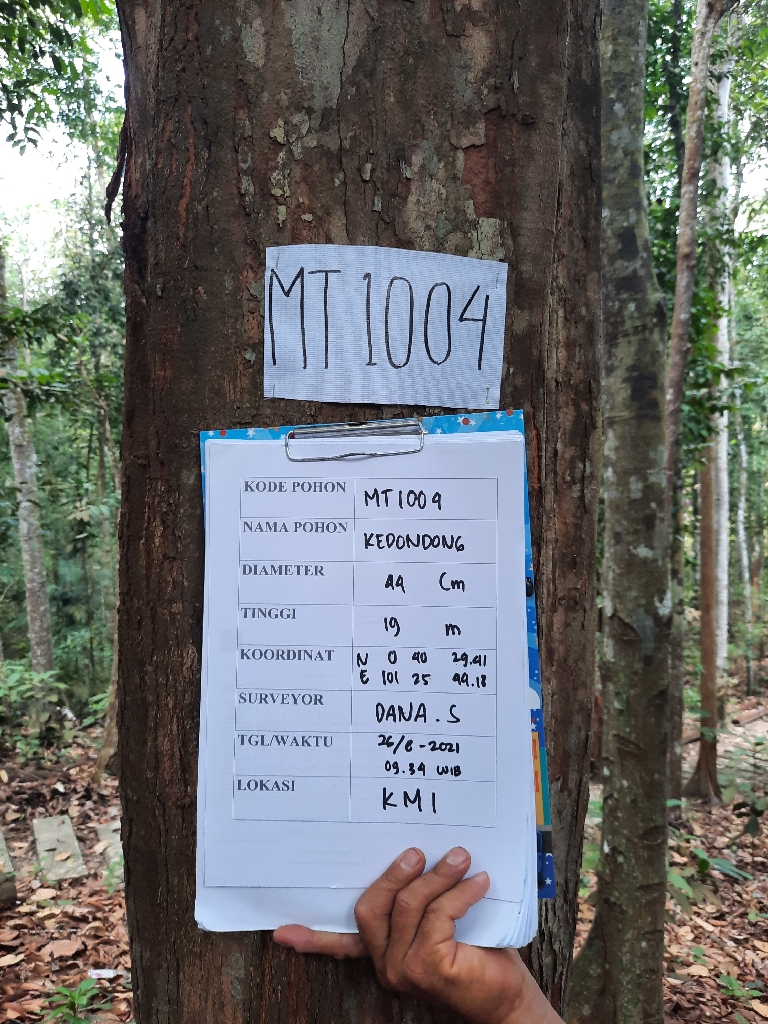 MT1004
KODE POHON MT1004
NAMA POHON KEDONDONG
DIAMETER 44 Cm
TINGGI 19 m
KOORDINAT N 0 40 29.41
E 101 25 44.18
SURVEYOR DANA.S
TGL/WAKTU 26/8-2021
09.34 WIB
LOKASI KMI